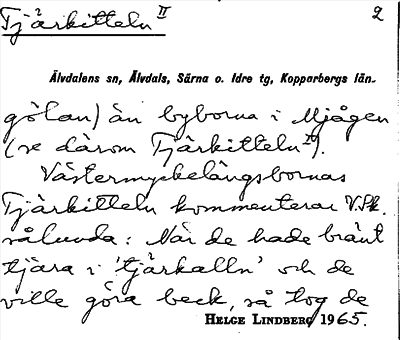 Tjärkitteln II 2
Älvdalens sn, Älvdals, Särna o. Idre tg, Kopparbergs län.
gölan) än byborna i Mjågen
(se därom Tjärkitteln I).
Västermyckelängsbornas
Tjärkitteln kommenterar V.Sk.
sålunda: När de hade bränt
tjära i 'tjärkalln' och de
ville göra beck, så tog de
HELGE LINDBERG 1965.